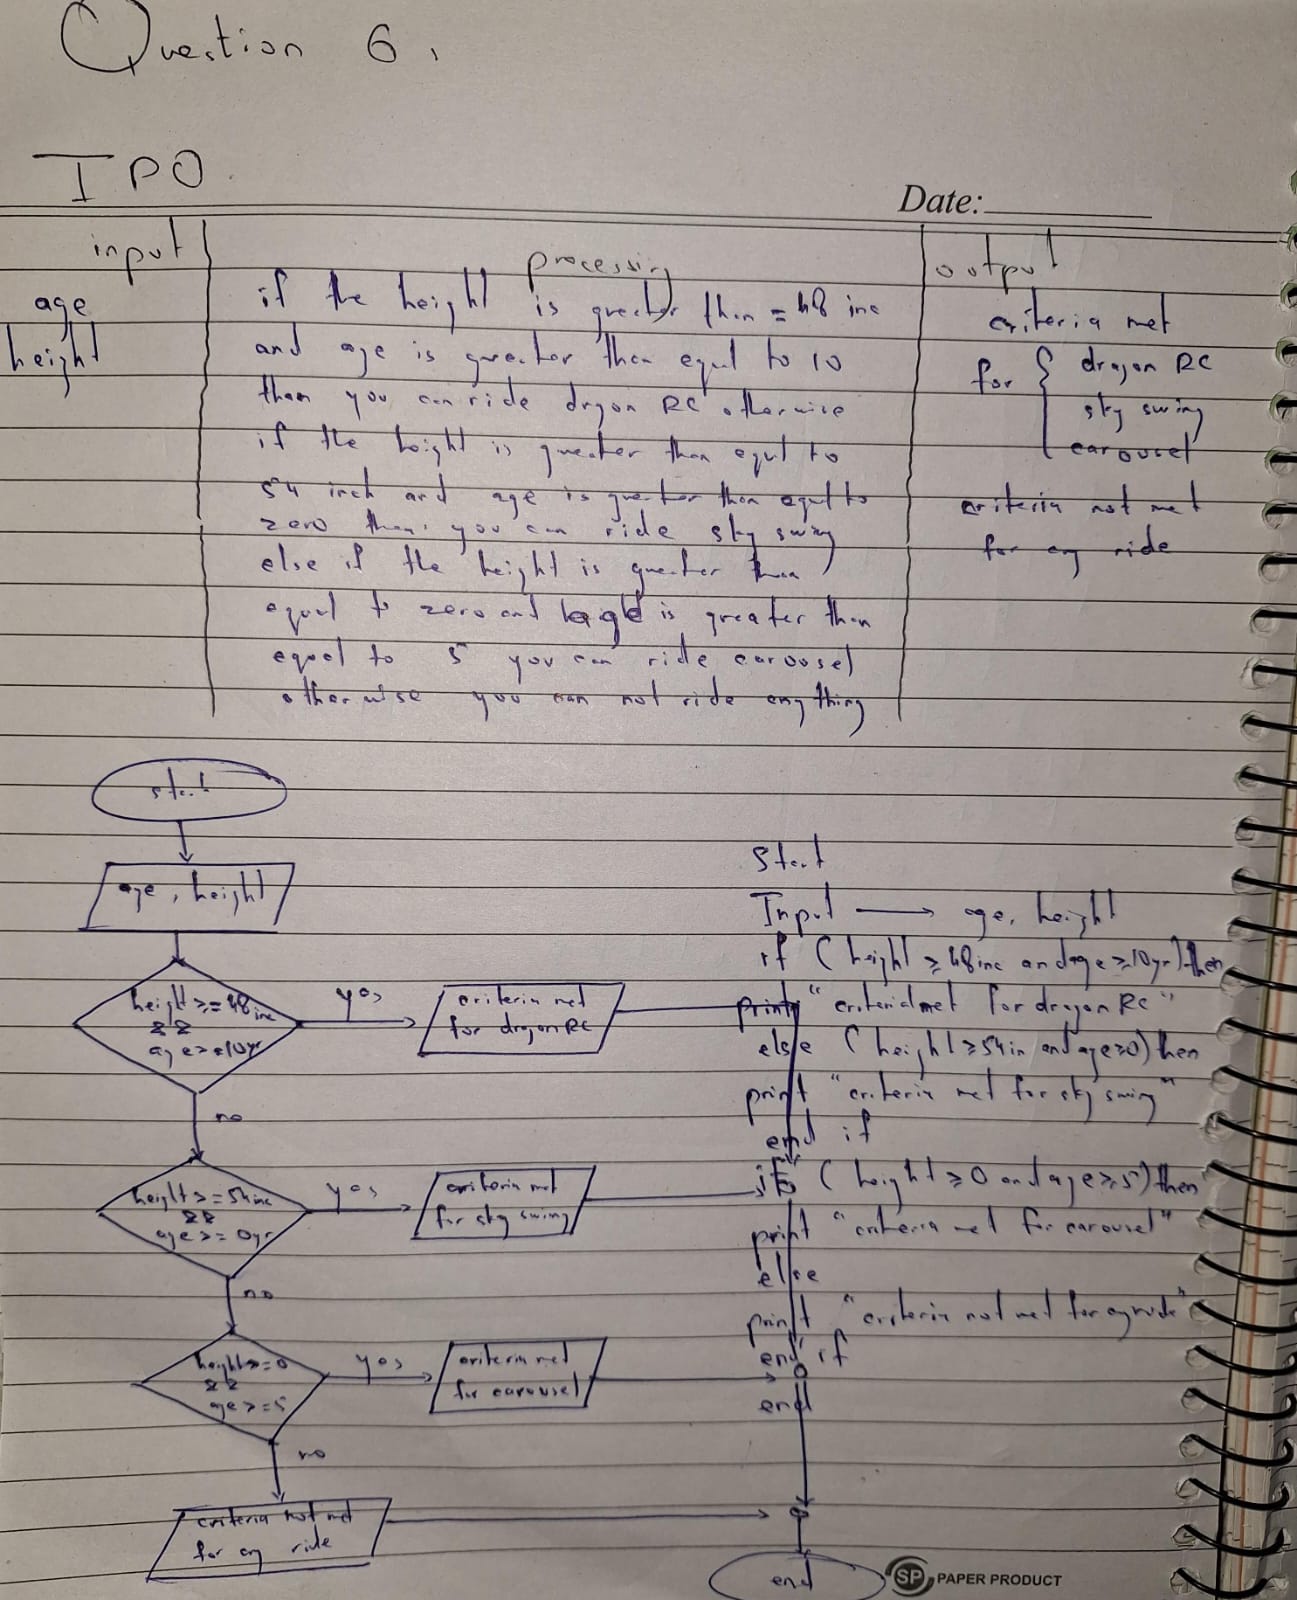 Question 6.
IPO
Date:
input
processing
output
age
height
if the height is greater than = 48 inc
and age is greater than equal to 10
than you can ride drgon RC otherwise
if the height is greater than equl to
54 inch and age is greater than equl to
zero than you can ride sky swing
else if the height is greater than
equal to zero and age is greater than
equal to 5 you can ride carousel
otherwise you can not ride any thing
criteria met
for { dragon RC
sky swing
carousel
criteria not met
for any ride
start
age, height
height >= 48 inc
&&
age >= 10yr
yes
criteria met
for dragon RC
no
height >= 54 inc
&&
age >= 0yr
yes
criteria met
for sky swing
no
height >= 0
&&
age >= 5
yes
criteria met
for carousel
no
criteria not met
for any ride
end
Start
Input → age, height
if (height ≥ 48 inc and age ≥ 10yr) then
print "criteria met for dragon RC"
else (height ≥ 54 in and age ≥ 0) then
print "criteria met for sky swing"
end if
if (height ≥ 0 and age ≥ 5) then
print "criteria met for carousel"
else
print "criteria not met for any ride"
end if
end
SP PAPER PRODUCT